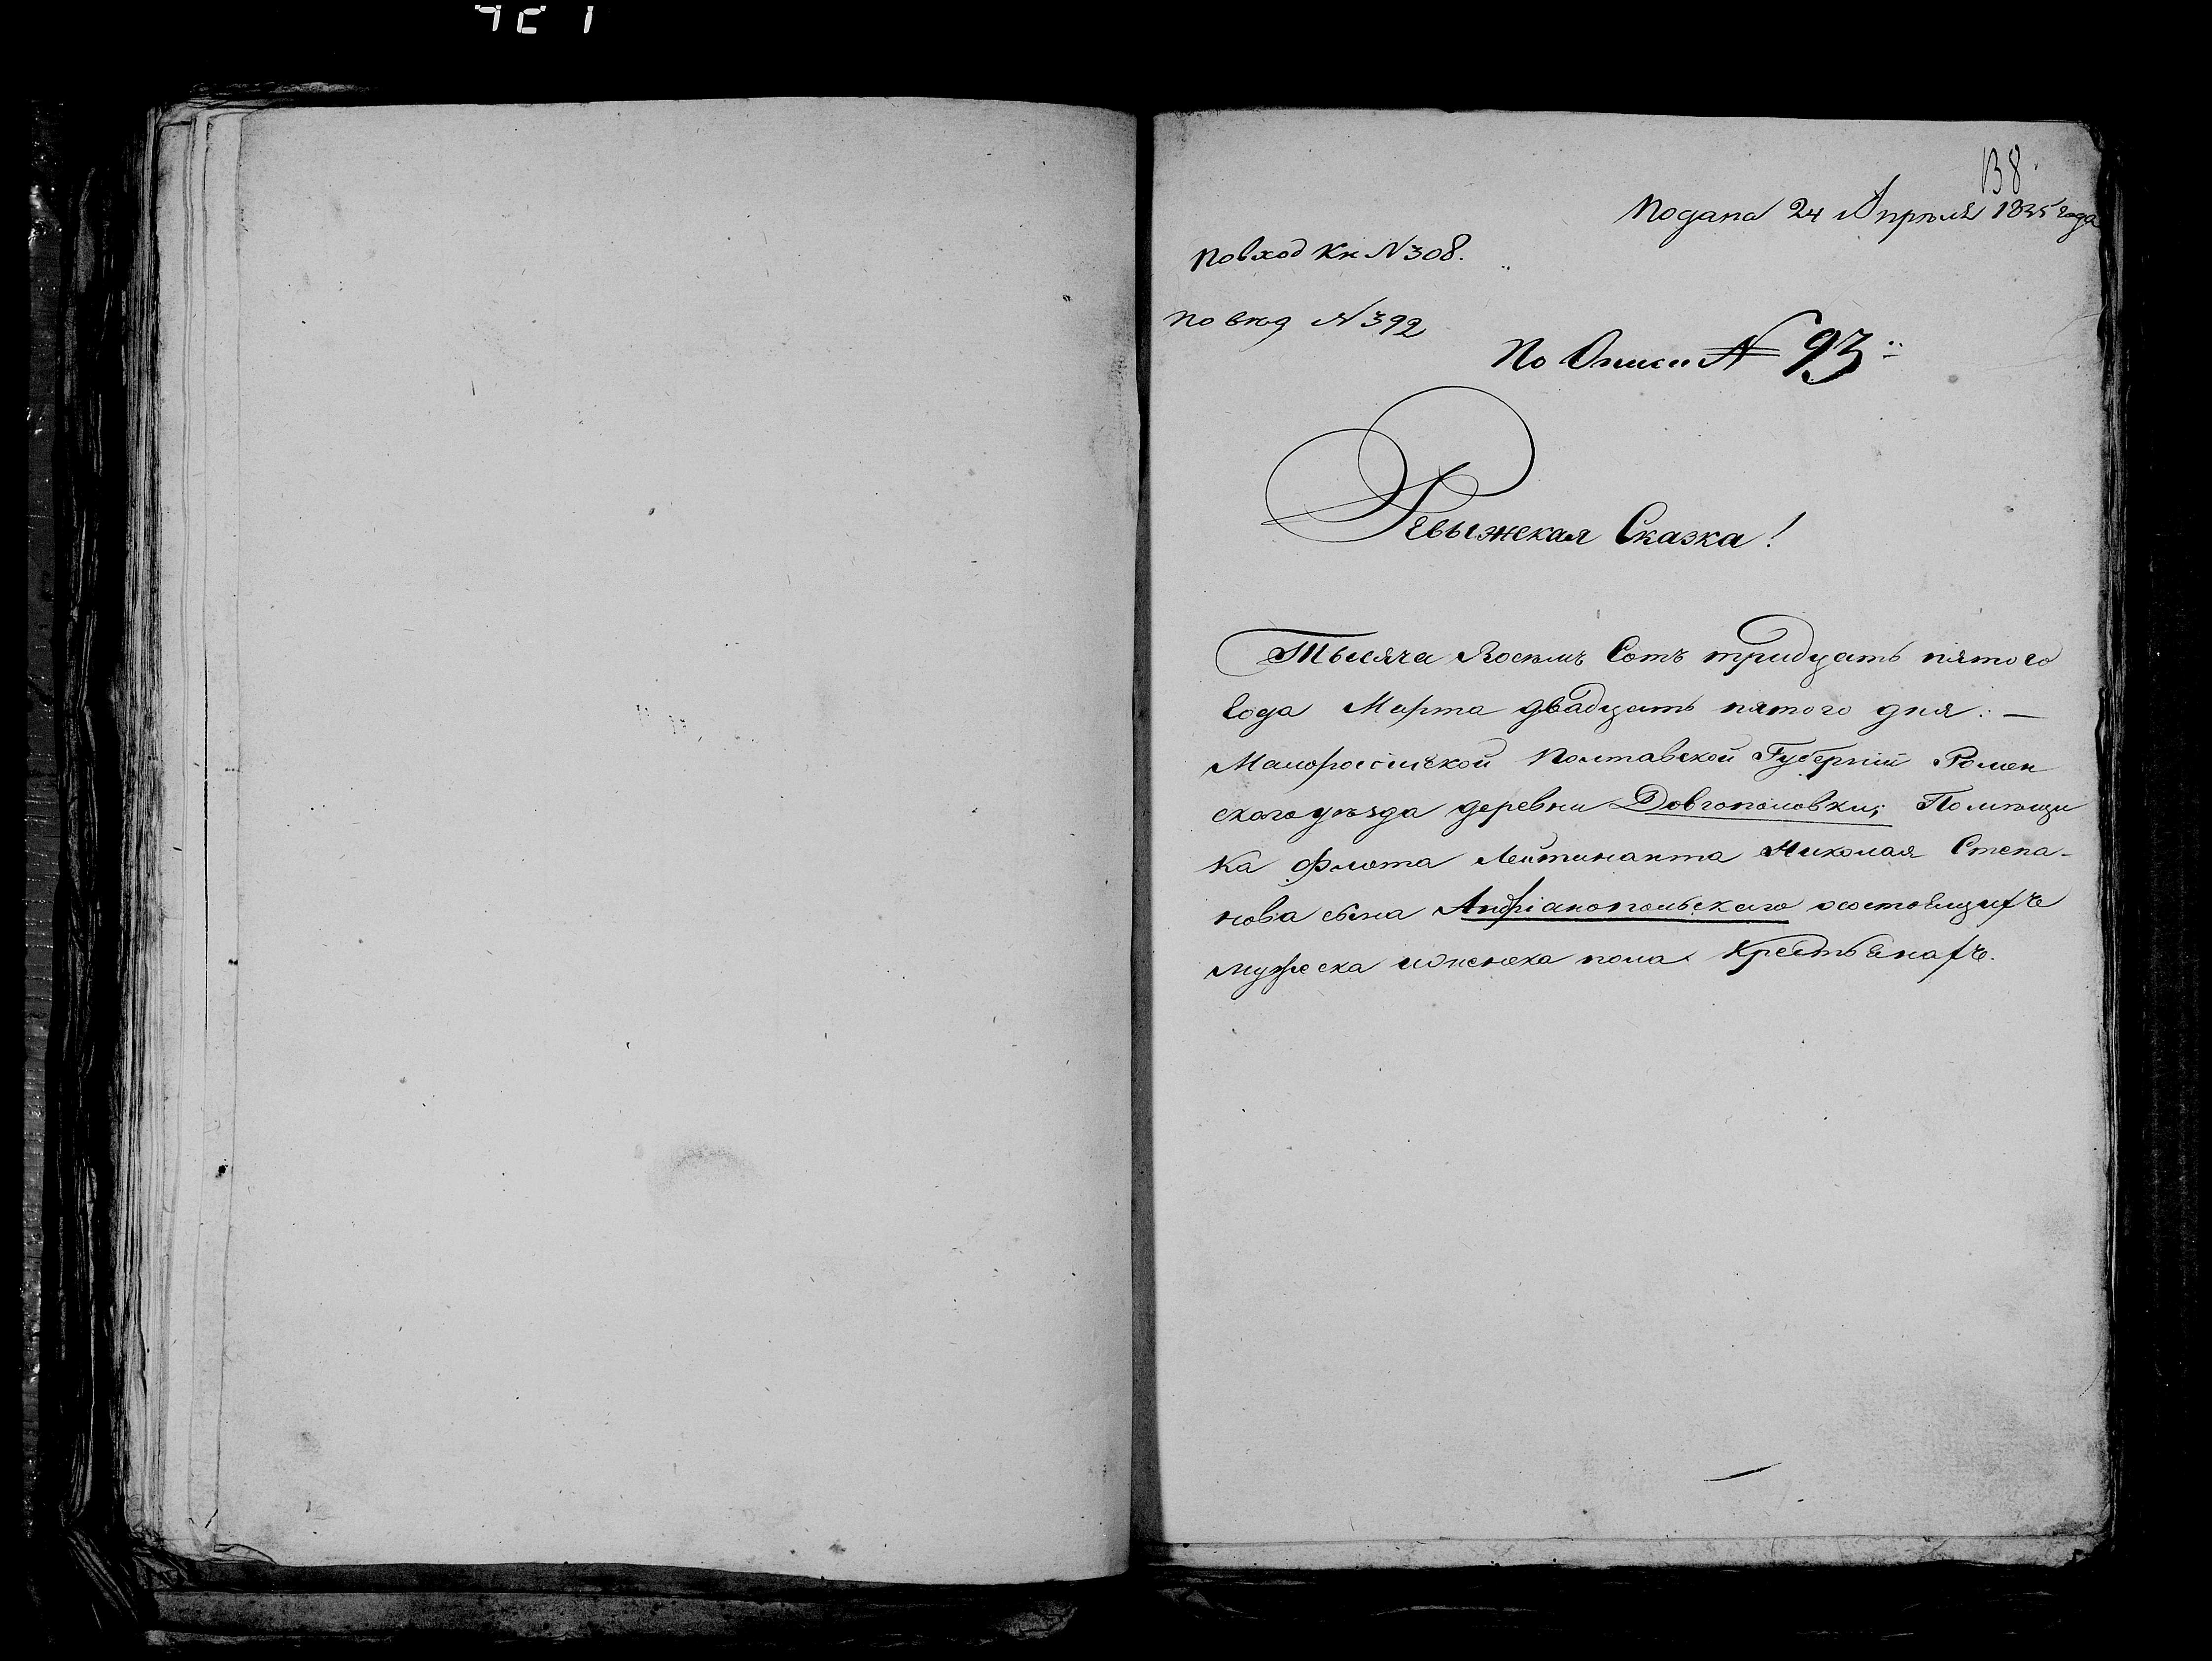 138.
Подана 24 Апреля 1835 года
По вход Кн N 308.
По вход N 392
По Описи N 93
Ревыжская Сказка!
Тысяча Восемъ Сотъ тридцать пятого
года Марта двадцать пятого дня: —
Малоросійской Полтавской Губерніи Ромен
ского уезда деревни Довгополовки; Помещи
ка Флота Лейтинанта Николая Степа-
нова сына Андріанопольскаго состоящихъ
мужеска и женска пола Крестьянахъ.